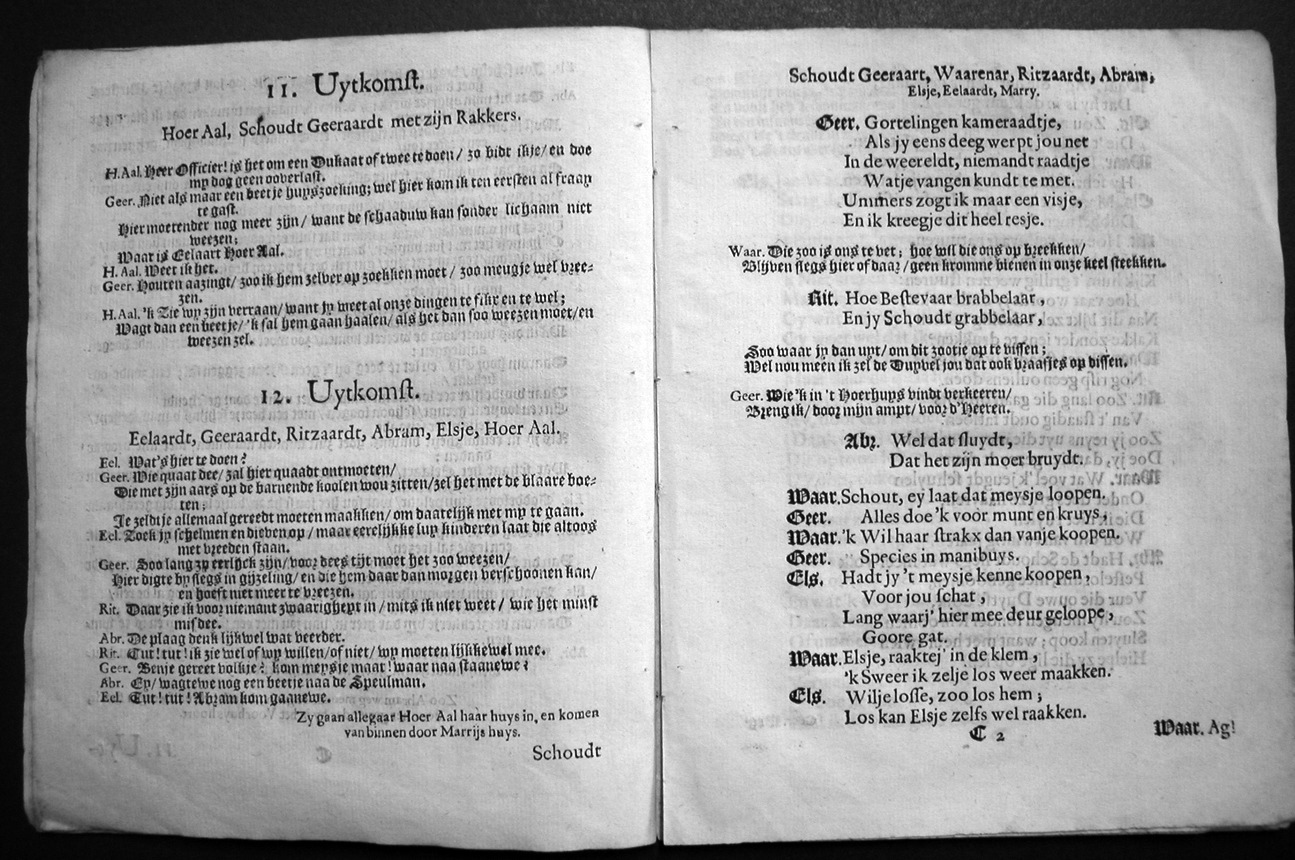 11. Uytkomst.
Hoer Aal, Schoudt Geeraardt met zijn Rakkers.
H. Aal. Heer Officier! is het om een Dukaat of twee te doen/ zo bidt ikje/ en doe
my dog geen ooverlast.
Geer. Niet als maar een beetje huyszoeking; wel hier kom ik ten eersten al fraay
te gast.
Hier moetender nog meer zijn/ want de schaaduw kan sonder lichaam niet
weezen;
Waar is Eelaart Hoer Aal.
H. Aal. Weet ik het.
Geer. Houten aazingt/ zoo ik hem zelver op zoekken moet/ zoo meugje wel vree-
zen.
H. Aal. 'k Zie wy zijn verraan/ want jy weet al onze dingen te fikx en te wel;
Wagt dan een beetje/ 'k sal hem gaan haalen/ als het dan soo weezen moet/ en
weezen zel.
12. Uytkomst.
Eelaardt, Geeraardt, Ritzaardt, Abram, Elsje, Hoer Aal.
Eel. Wat's hier te doen?
Geer. Wie quaat dee/ zal hier quaadt ontmoeten/
Die met zijn aars op de barnende koolen wou zitten/ zel het met de blaare boe-
ten;
Je zeldtje allemaal gereedt moeten maakken/ om daatelijk met my te gaan.
Eel. Zoek jy schelmen en dieven op/ maar eerelijkke luy kinderen laat die altoos
met vreeden staan.
Geer. Soo lang zy eerlyck zijn/ voor dees tijt moet het zoo weezen/
Hier digte by slegs in gijzeling/ en die hem daar dan morgen verschoonen kan/
en hoeft niet meer te vreezen.
Rit. Daar zie ik voor niemant zwaarigheyt in/ mits ik niet weet/ wie het minst
misdee.
Abr. De plaag denk lijkwel wat veerder.
Rit. Tut! tut! ik zie wel of wy willen/ of niet/ wy moeten lijkkewel mee.
Geer. Benje gereet volkje? kom meysje maat! waar naa staanewe?
Abr. Ey/ wagtewe nog een beetje naa de Speulman.
Eel. Tut! tut! Abram kom gaanewe.
Zy gaan allegaar Hoer Aal haar huys in, en komen
van binnen door Marrijs huys.
Schoudt
Schoudt Geeraart, Waarenar, Ritzaardt, Abram,
Elsje, Eelaardt, Marry.
Geer. Gortelingen kameraadtje,
Als jy eens deeg werpt jou net
In de weereldt, niemandt raadtje
Watje vangen kundt te met.
Ummers zogt ik maar een visje,
En ik kreegje dit heel resje.
Waar. Die zoo is ons te vet; hoe wil die ons op breekken/
Blijven slegs hier of daar/ geen kromme bienen in onze keel steekken.
Rit. Hoe Bestevaar brabbelaar,
En jy Schoudt grabbelaar,
Soo waar jy dan uyt/ om dit zootje op te vissen;
Wel nou meen ik zel de Duyvel jou dat ook braafjes op dissen.
Geer. Wie 'k in 't Hoerhuys vindt verkeeren/
Breng ik/ door mijn ampt/ voor d'Heeren.
Abr. Wel dat sluydt,
Dat het zijn moer bruydt.
Waar. Schout, ey laat dat meysje loopen.
Geer. Alles doe 'k voor munt en kruys,
Waar. 'k Wil haar strakx dan vanje koopen.
Geer. Species in manibuys.
Els. Hadt jy 't meysje kenne koopen,
Voor jou schat,
Lang waarj' hier mee deur geloope,
Goore gat.
Waar. Elsje, raaktej' in de klem,
'k Sweer ik zelje los weer maakken.
Els. Wilje losse, zoo los hem;
Los kan Elsje zelfs wel raakken.
C 2
Waar. Ag!